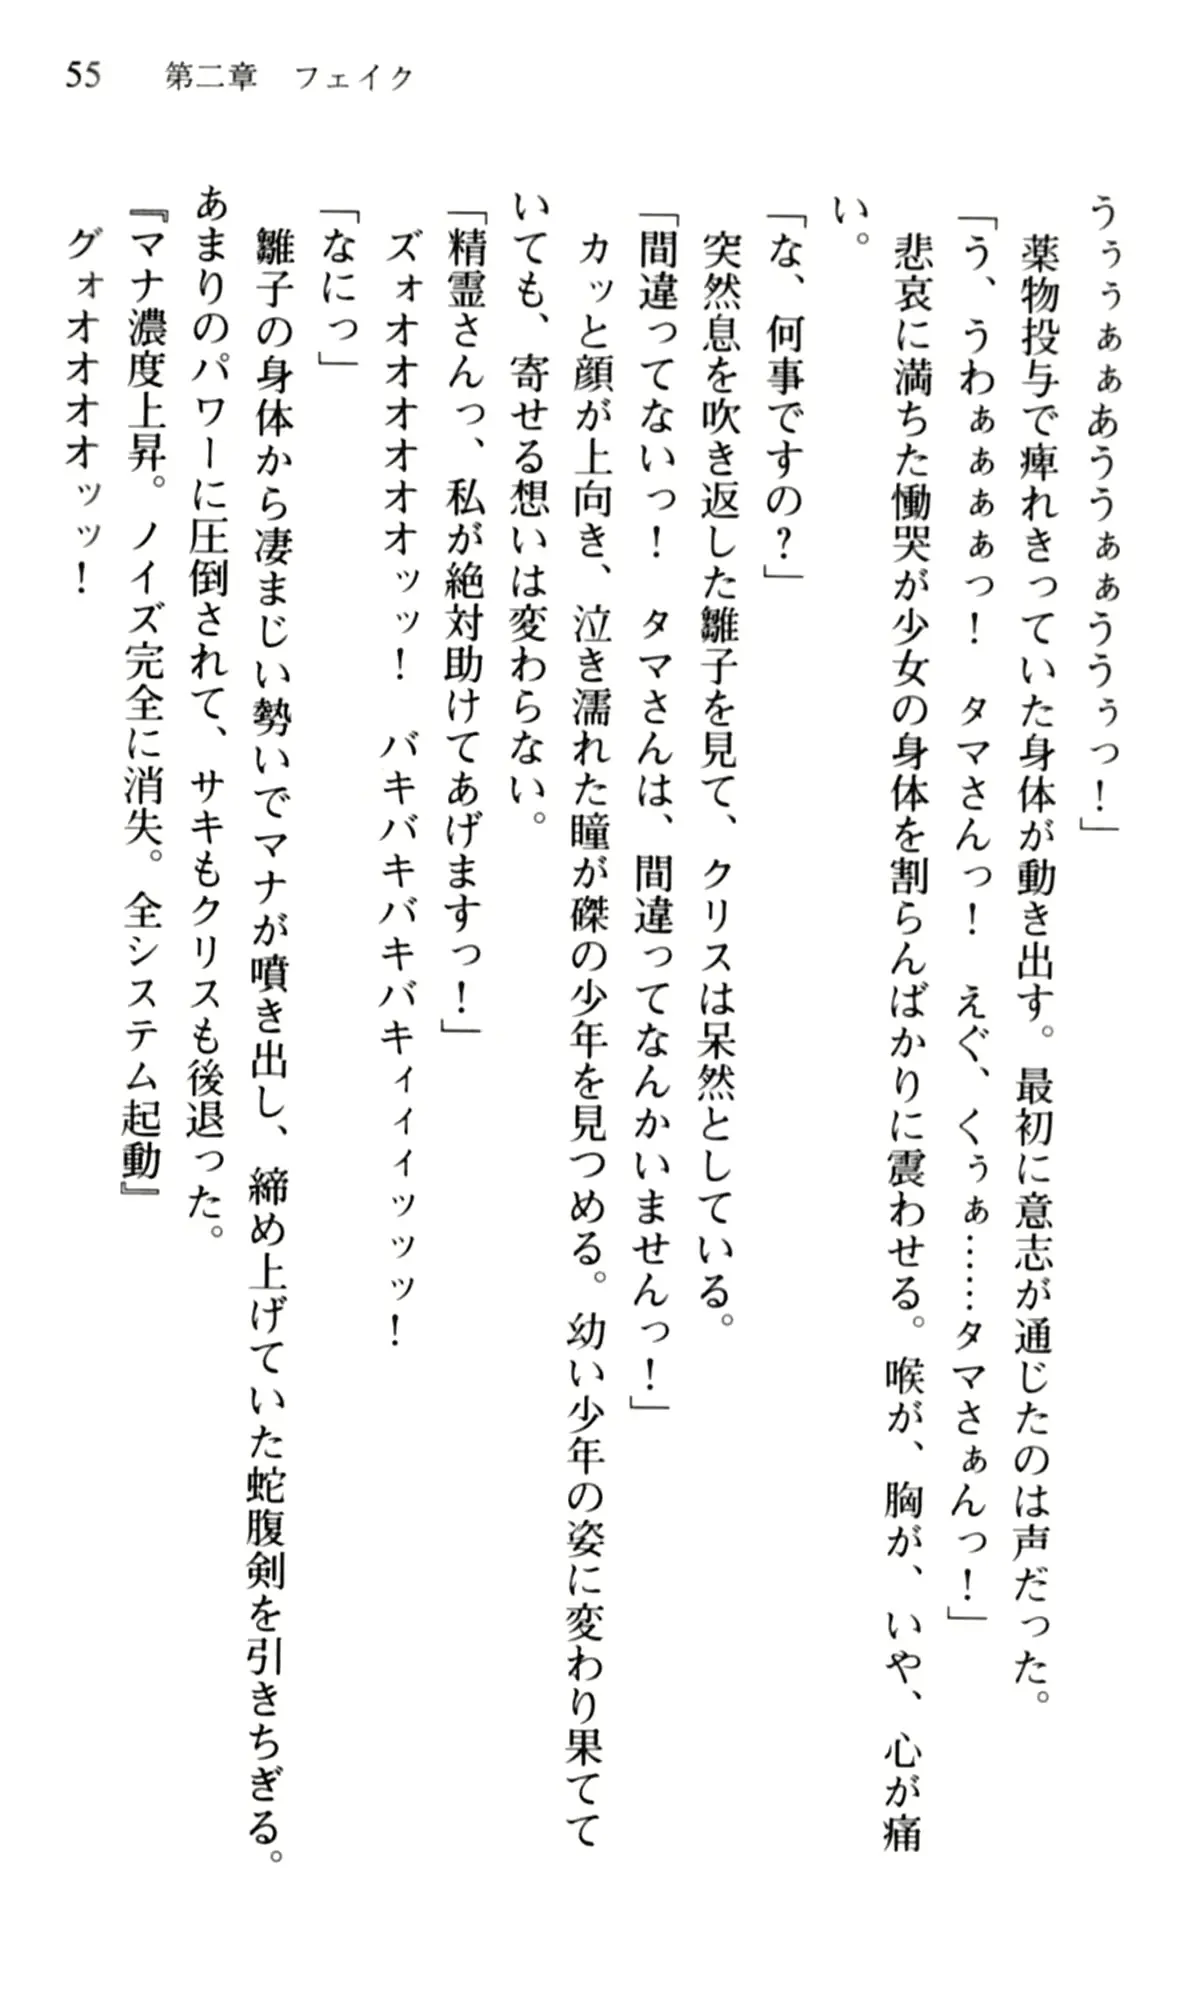 55　第二章　フェイク
うぅぅぁぁあううぁぁううぅっ！」
　薬物投与で痺れきっていた身体が動き出す。最初に意志が通じたのは声だった。
「う、うわぁぁぁぁっ！　タマさんっ！　えぐ、くぅぁ……タマさぁんっ！」
　悲哀に満ちた慟哭が少女の身体を割らんばかりに震わせる。喉が、胸が、いや、心が痛
い。
「な、何事ですの？」
　突然息を吹き返した雛子を見て、クリスは呆然としている。
「間違ってないっ！　タマさんは、間違ってなんかいませんっ！」
　カッと顔が上向き、泣き濡れた瞳が磔の少年を見つめる。幼い少年の姿に変わり果てて
いても、寄せる想いは変わらない。
「精霊さんっ、私が絶対助けてあげますっ！」
　ズォオオオオオオッッ！　バキバキバキバキィィィッッッ！
「なにっ」
　雛子の身体から凄まじい勢いでマナが噴き出し、締め上げていた蛇腹剣を引きちぎる。
あまりのパワーに圧倒されて、サキもクリスも後退った。
『マナ濃度上昇。ノイズ完全に消失。全システム起動』
　グォオオオオッッ！